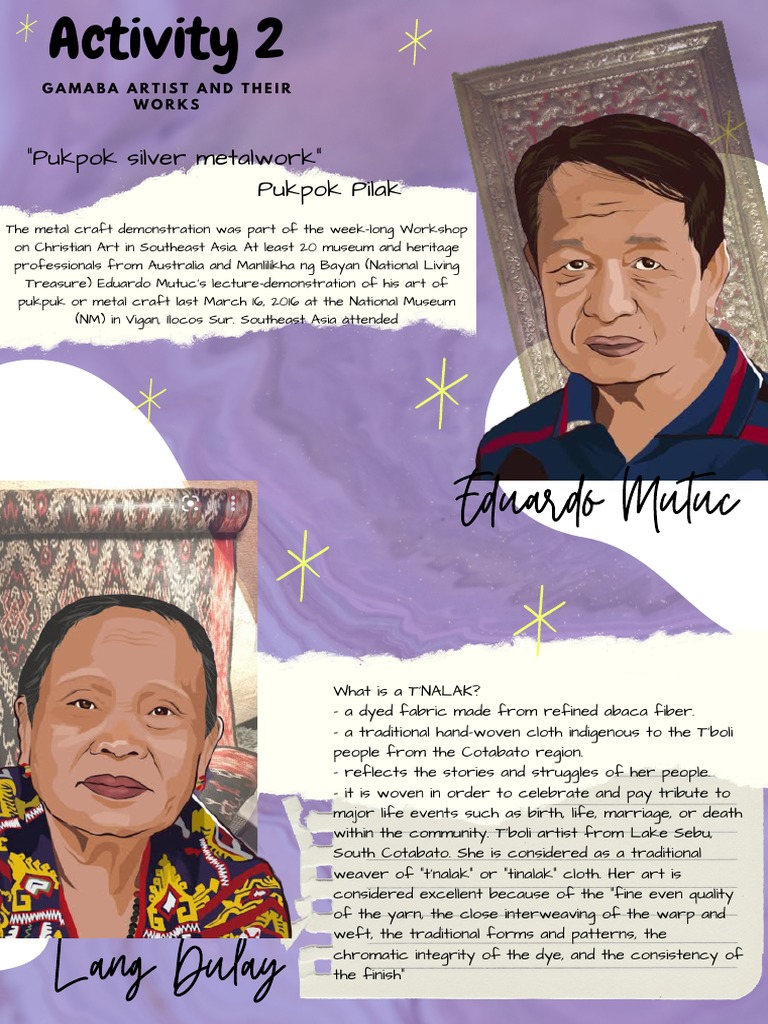 Activity 2
GAMABA ARTIST AND THEIR
WORKS
"Pukpok silver metalwork"
Pukpok Pilak
The metal craft demonstration was part of the week-long Workshop
on Christian Art in Southeast Asia. At least 20 museum and heritage
professionals from Australia and Manlilikha ng Bayan (National Living
Treasure) Eduardo Mutuc's lecture-demonstration of his art of
pukpuk or metal craft last March 16, 2016 at the National Museum
(NM) in Vigan, Ilocos Sur. Southeast Asia attended
Eduardo Mutuc
What is a T'NALAK?
- a dyed fabric made from refined abaca fiber.
- a traditional hand-woven cloth indigenous to the T'boli
people from the Cotabato region.
- reflects the stories and struggles of her people.
- it is woven in order to celebrate and pay tribute to
major life events such as birth, life, marriage, or death
within the community. T'boli artist from Lake Sebu,
South Cotabato. She is considered as a traditional
weaver of "t'nalak" or "tinalak" cloth. Her art is
considered excellent because of the "fine even quality
of the yarn, the close interweaving of the warp and
weft, the traditional forms and patterns, the
chromatic integrity of the dye, and the consistency of
the finish"
Lang Dulay